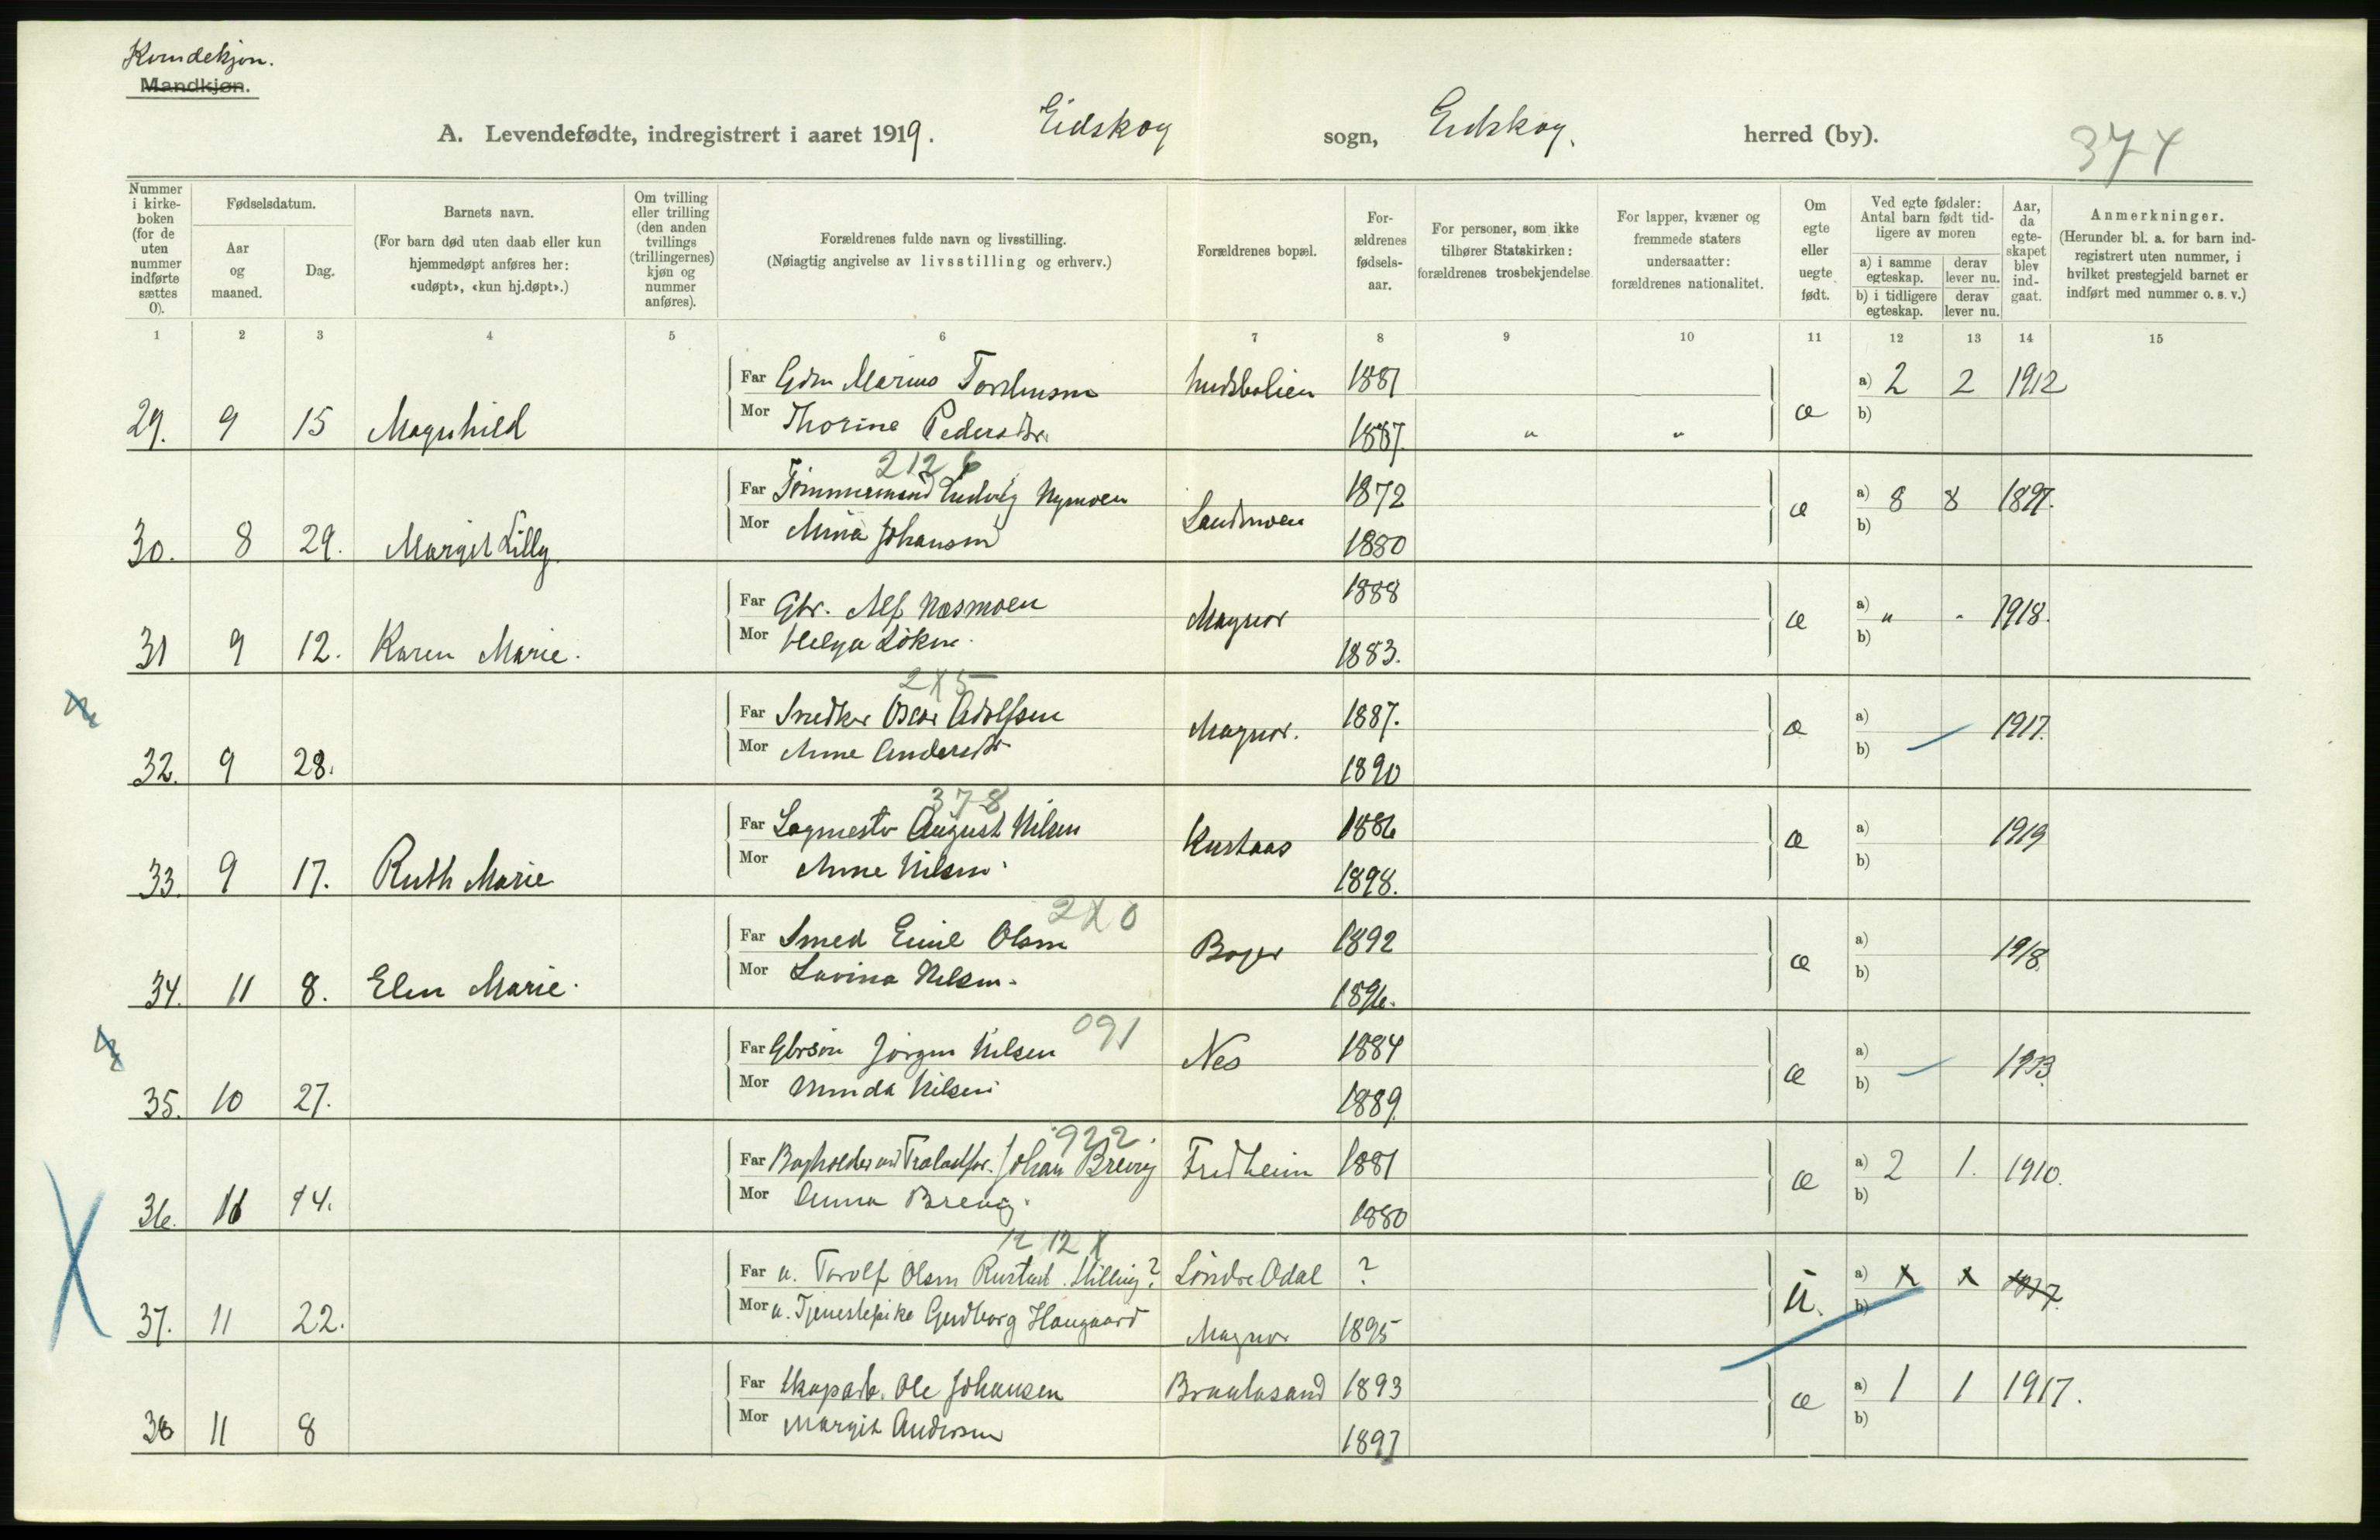 Kvindekjøn.
Mandkjøn.
A. Levendefødte, indregistrert i aaret 1919. Eidskog sogn, Eidskog. herred (by). 374
Nummer i kirkeboken (for de uten nummer indførte sættes 0).
Fødselsdatum.
Aar og maaned.
Dag.
Barnets navn.
(For barn død uten daab eller kun hjemmedøpt anføres her: «udøpt», «kun hj.døpt».)
Om tvilling eller trilling (den anden tvillings (trillingernes) kjøn og nummer anføres).
Forældrenes fulde navn og livsstilling.
(Nøiagtig angivelse av livsstilling og erhverv.)
Forældrenes bopæl.
Forældrenes fødselsaar.
For personer, som ikke tilhører Statskirken: forældrenes trosbekjendelse.
For lapper, kvæner og fremmede staters undersaatter: forældrenes nationalitet.
Om egte eller uegte født.
Ved egte fødsler: Antal barn født tidligere av moren
a) i samme egteskap. derav lever nu.
b) i tidligere egteskap. derav lever nu.
Aar, da egteskapet blev indgaat.
Anmerkninger.
(Herunder bl. a. for barn indregistrert uten nummer, i hvilket prestegjeld barnet er indført med nummer o. s. v.)
1 2 3 4 5 6 7 8 9 10 11 12 13 14 15
Far Gdm Marius 1881 a) 2 2 1912
29. 9 15 Magnhild Mor Thorine Pedersdtr. 1887. " " æ b)
2126
Far Tømmermand Ludvig Nymoen 1872 a) 8 8 1897.
30. 8 29. Margit Lilly Mor Mina Johansen Sandmoen 1880 æ b)
Far Gbr. Alf Næsmoen Magnor 1888 a) " " 1918.
31 9 12. Karen Marie. Mor Helga Løken. 1883. æ b)
2X5
Far Snedker Oscar Adolfsen Magnor. 1887. a) 1917.
32. 9 28. Mor Anne Andersdtr 1890 æ b)
378
Far Lagmester August Nilsen Kustaas 1886 a) 1919
33. 9 17. Ruth Marie Mor Anne Nilsen. 1898. æ b)
2X0
Far Smed Emil Olsen Boger 1892 a) 1918.
34. 11 8. Elen Marie. Mor Lovina Nilsen. 1896. æ b)
091
Far Gbrsøn Jørgen Nilsen Nes 1884 a) 1913
35. 10 27. Mor Nilsen 1889. æ b)
922.
Far Bogholder ved Johan Brevig Fredheim 1881 a) 2 1. 1910.
36. 11 14. Mor Anna Brevig. 1880 æ b)
12 12 X
Far u. Torolf Olsen Rustad. Stilling? Søndre Odal ? a) x x 1917.
37. 11 22. Mor u. Tjenestepike Gudborg Haugaard Magnor 1895 u. b)
Far Skoparb. Ole Johansen Braatasand 1893 a) 1 1 1917.
38 11 8 Mor Margit Andersen 1897 æ b)